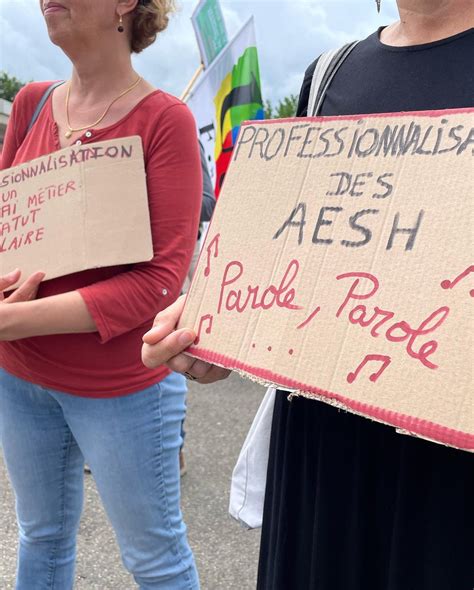 SIONNALISATION
UN
AI MÉTIER
TATUT
LAIRE
PROFESSIONNALISA
DES
AESH
Parole, Parole
...